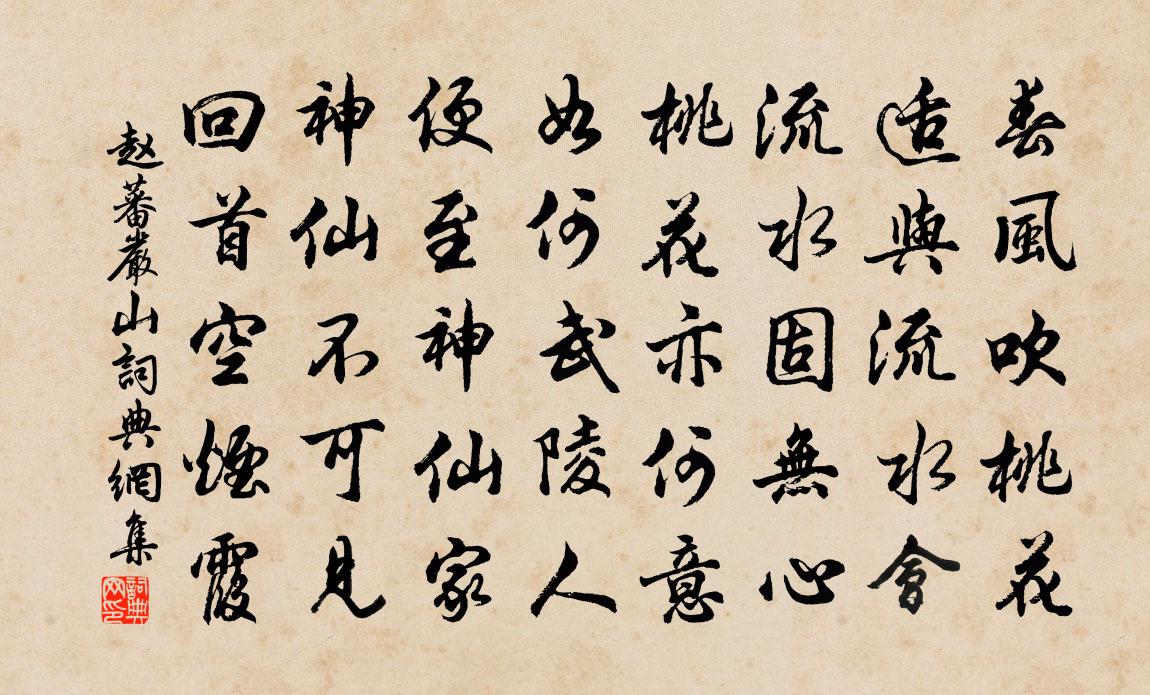 春風吹桃花
适與流水會
流水固無心
桃花亦何意
如何武陵人
便至神仙家
神仙不可見
回首空煙霞
赵蕃嚴山詞典網集
詞典
网印